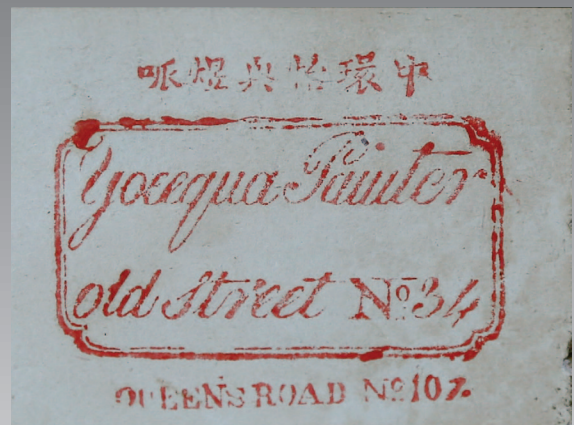 中環怡興煜呱
Yoeequa Painter
old Street Nº 34
QUEENS ROAD Nº 107.